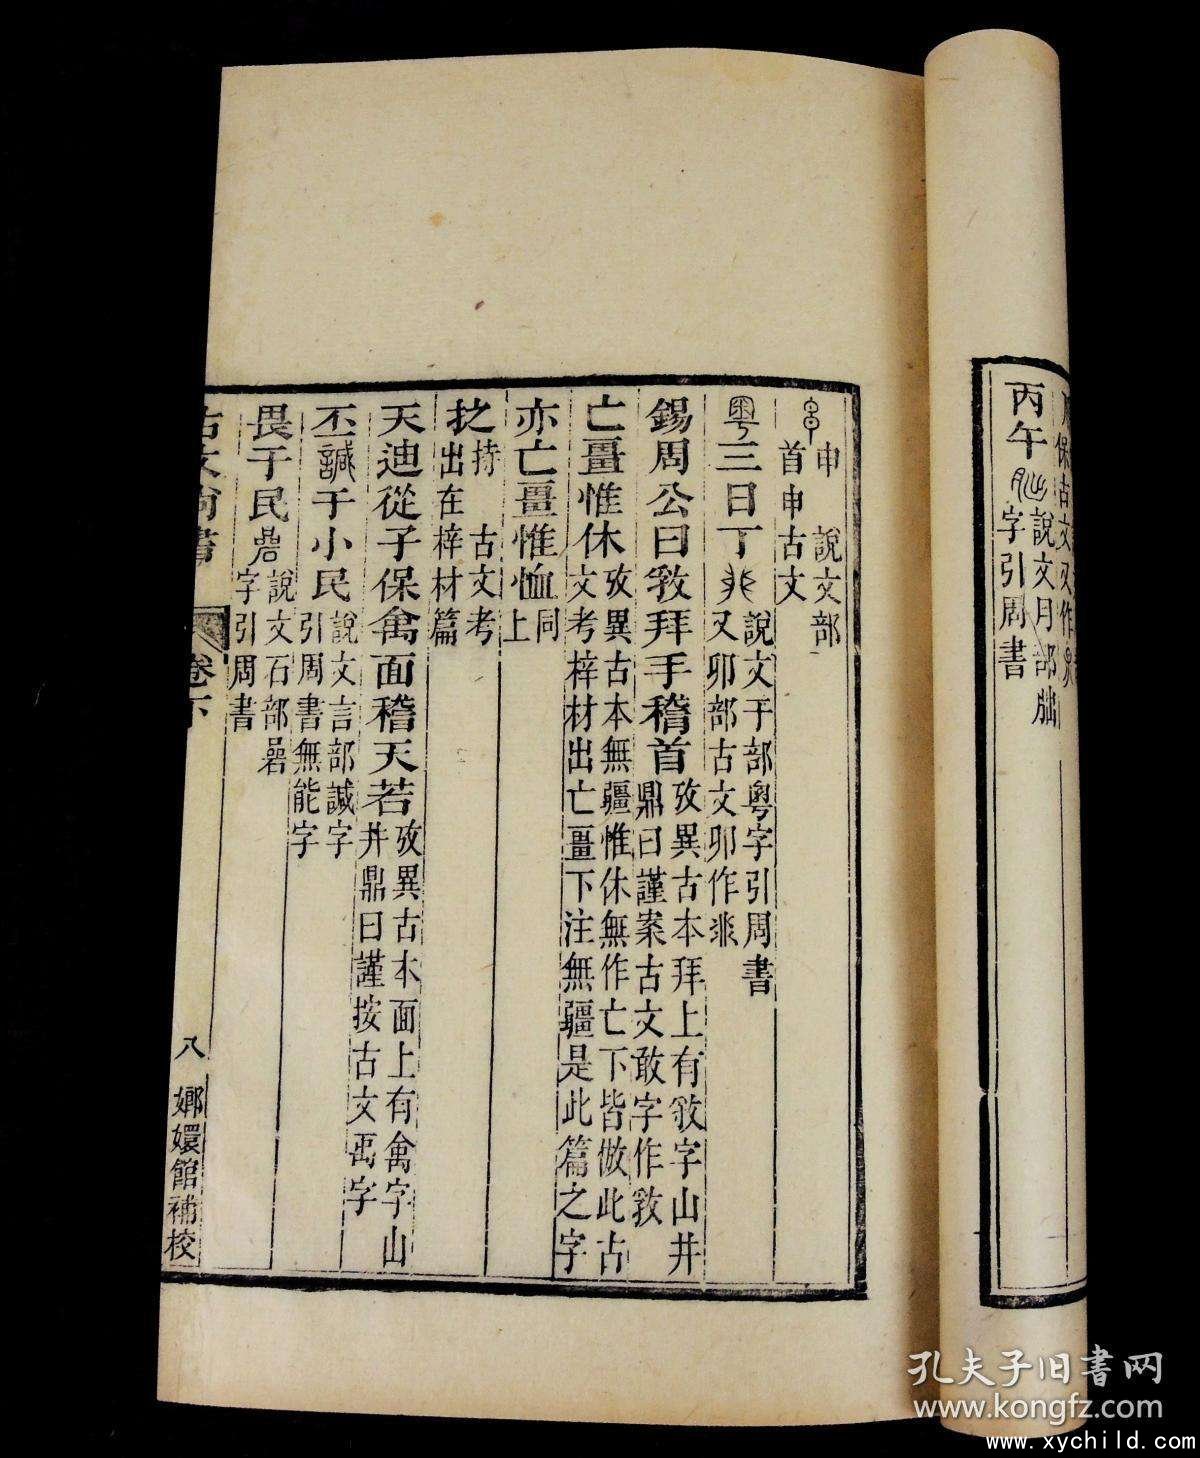 丙午
說文月部朏
字引周書
申 說文部
首申古文
粵三日丁
說文于部粵字引周書
又卯部古文卯作
錫周公曰敎拜手稽首
攷異古本拜上有敎字山井
鼎曰謹案古文敢字作敎
亡畺惟休
攷異古本無疆惟休無作亡下皆倣此古
文考梓材出亡畺下注無疆是此篇之字
亦亡畺惟恤
同
上
持 古文考
出在梓材篇
天迪從子保禽面稽天若
攷異古本面上有禽字山
井鼎曰謹按古文禹字
丕諴于小民
說文言部諴字
引周書無能字
畏于民嵒
說文石部碞
字引周書
古文尚書
卷下
八
嫏嬛館補校
孔夫子旧书网
www.kongfz.com
www.xychild.com